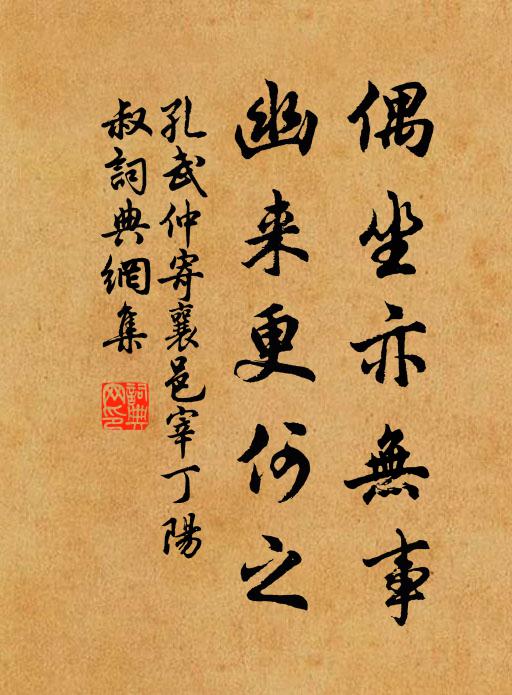 偶坐亦無事
幽来更何之
孔武仲寄襄邑宰丁陽
叔詞典網集
詞典
网印